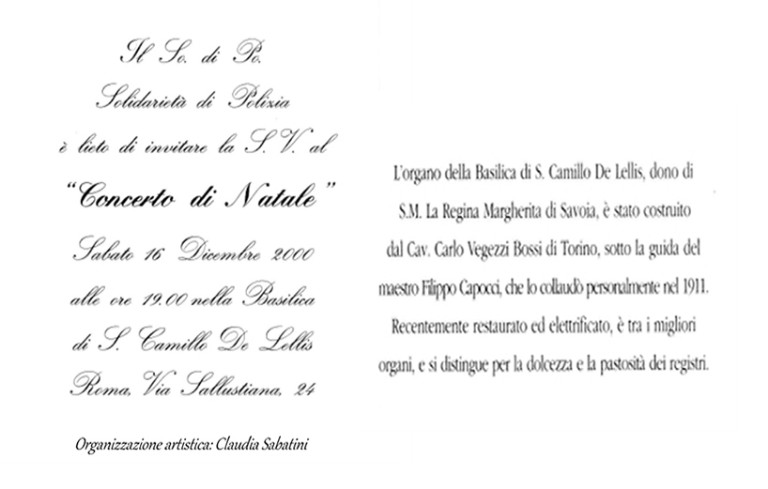 Il So. di Po.
Solidarietà di Polizia
è lieto di invitare la S. V. al
“Concerto di Natale”
Sabato 16 Dicembre 2000
alle ore 19.00 nella Basilica
di S. Camillo De Lellis
Roma, Via Sallustiana, 24
Organizzazione artistica: Claudia Sabatini
L'organo della Basilica di S. Camillo De Lellis, dono di
S.M. La Regina Margherita di Savoia, è stato costruito
dal Cav. Carlo Vegezzi Bossi di Torino, sotto la guida del
maestro Filippo Capocci, che lo collaudò personalmente nel 1911.
Recentemente restaurato ed elettrificato, è tra i migliori
organi, e si distingue per la dolcezza e la pastosità dei registri.